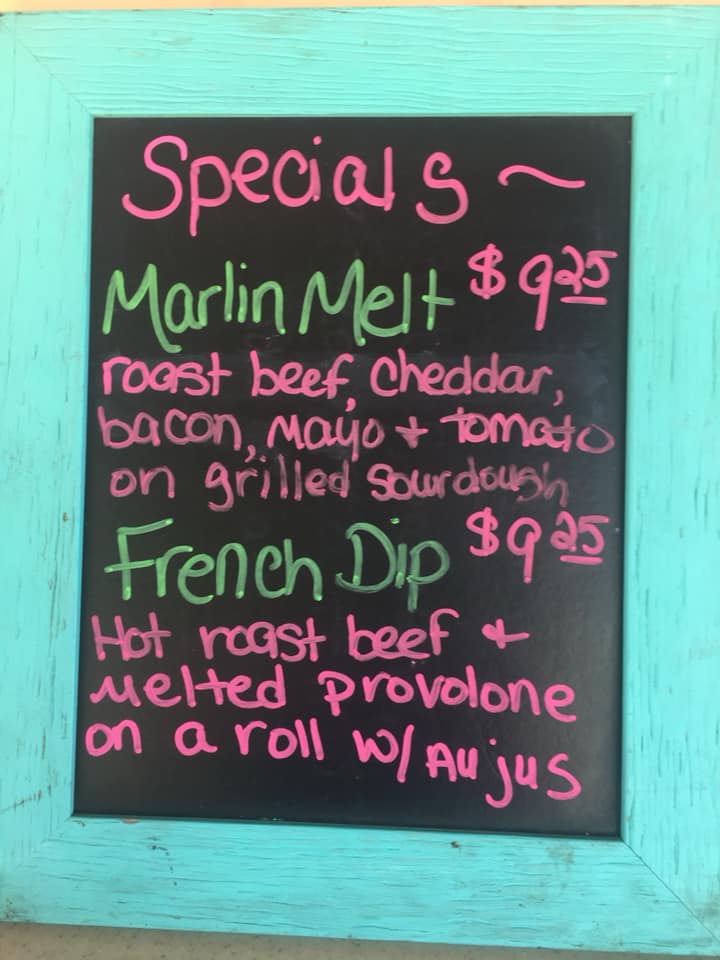 Specials ~
Marlin Melt $9.25
roast beef, cheddar,
bacon, mayo + tomato
on grilled sourdough
French Dip $9.25
Hot roast beef +
melted provolone
on a roll w/ Au jus